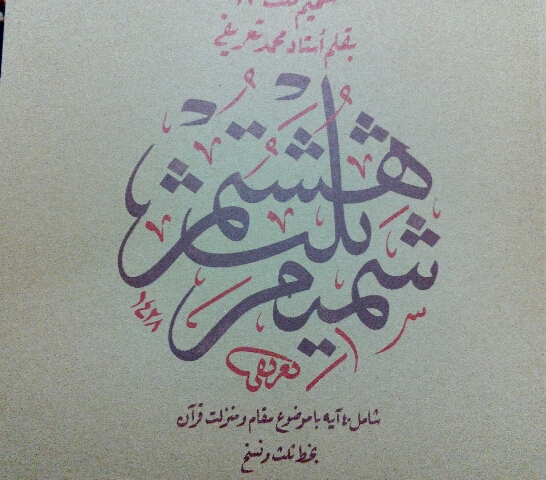 شمیم ثلث
بقلم استاد محمد تعریفی
شمیم ثلث هشتم
۱۴۳۸
تعریفی
شامل ۴۰ آیه با موضوع مقام و منزلت قرآن
بخط ثلث و نسخ